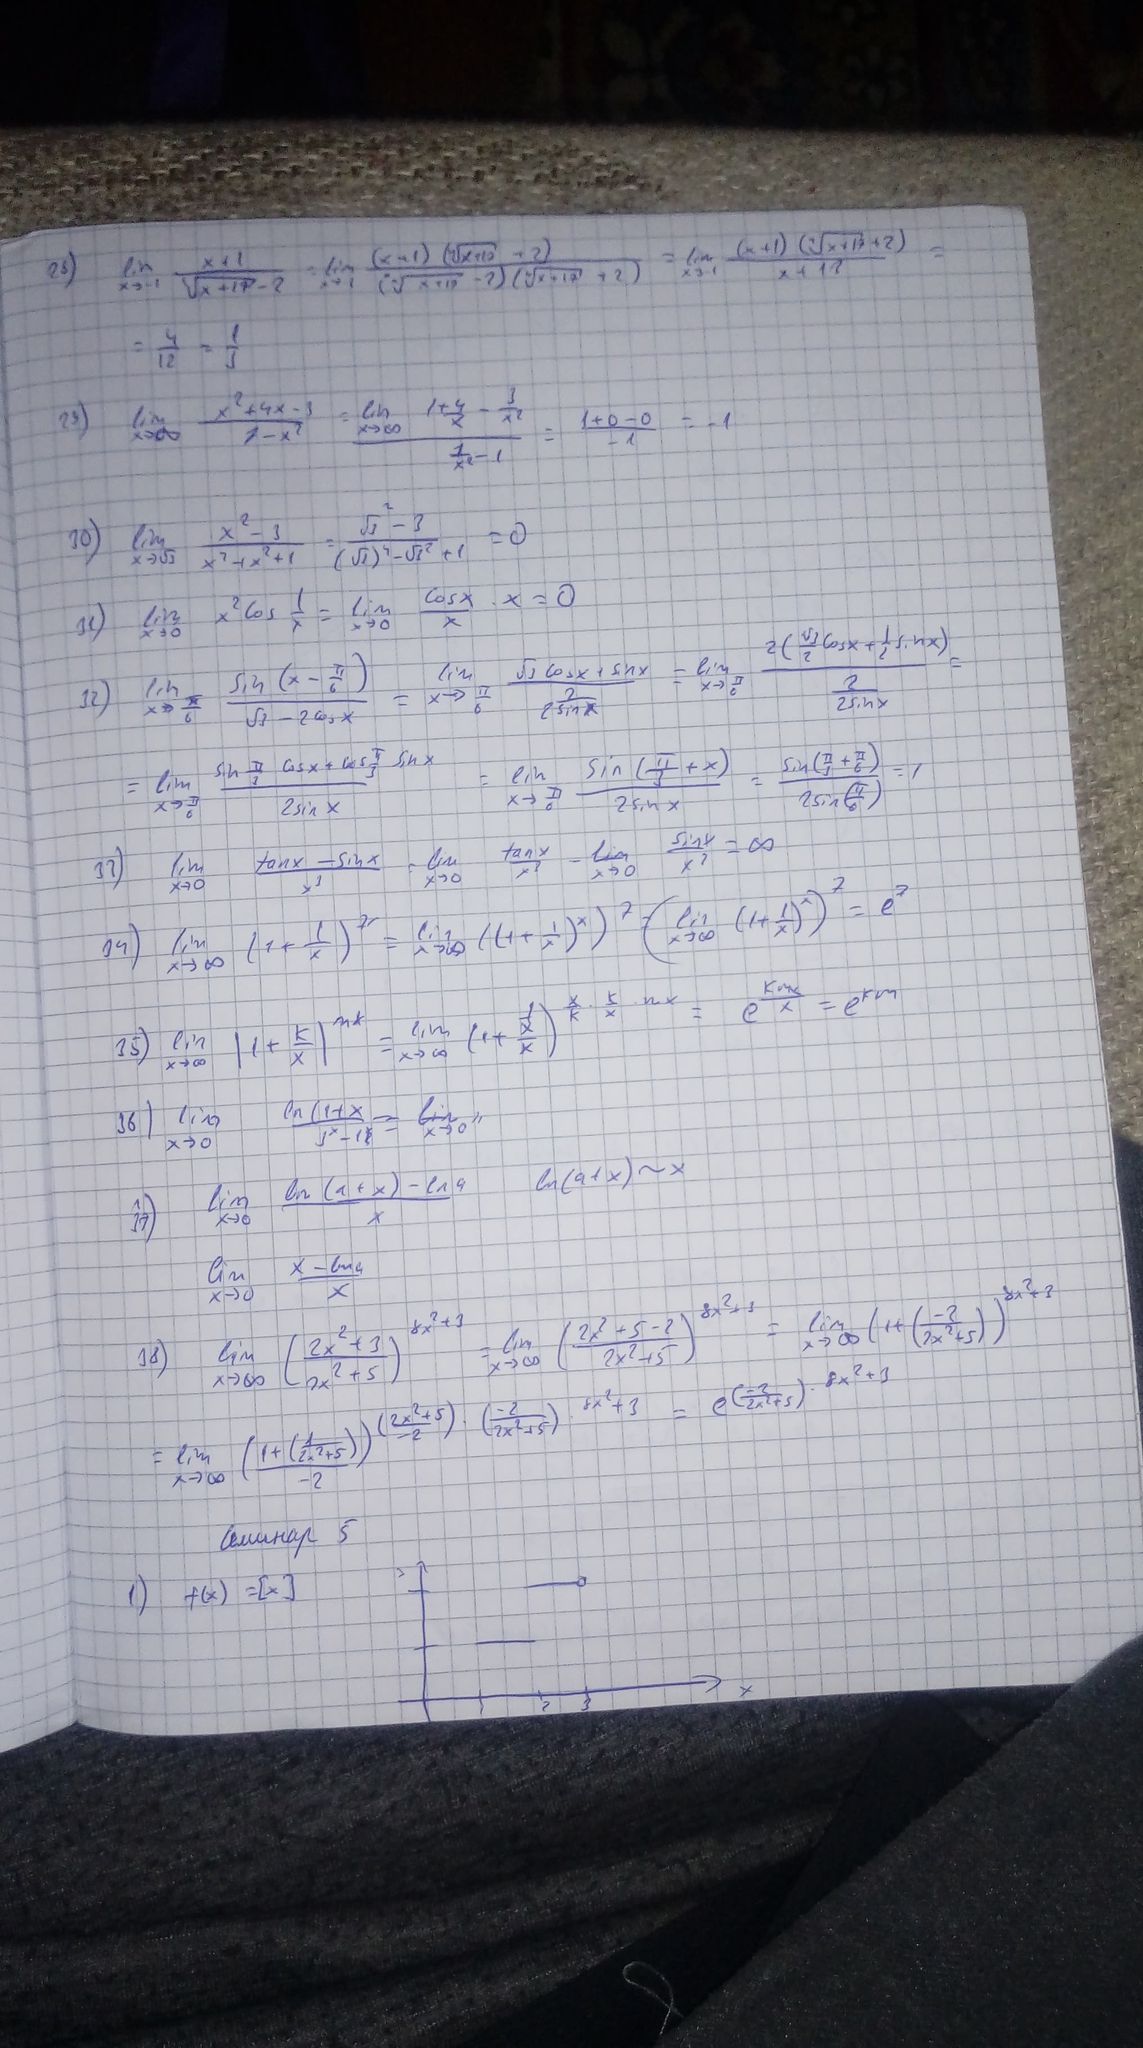 lim x→-1 (x+1)/(∜(x+17) -2) = lim x→-1 (x+1)(∜(x+17) +2)/((∜(x+17) -2)(∜(x+17) +2)) = lim x→-1 (x+1)(∜(x+17) +2)/(x+12) =
= 4/12 = 1/3
29) lim x→∞ (x²+4x-3)/(1-x²) = lim x→∞ (1+4/x - 3/x²)/(1/x² -1) = (1+0-0)/(-1) = -1
30) lim x→√3 (x²-3)/(x⁴+x²+1) = (√3² -3)/((√3)⁴-√3²+1) = 0
31) lim x→0 x² cos 1/x = lim x→0 cosx/x · x = 0
32) lim x→π/6 sin(x-π/6)/(√3-2cosx) = lim x→π/6 (√3 cosx + sinx)/(2/2sinx) = lim x→π/6 2(√3/2 cosx + 1/2 sinx)/(2/2sinx) =
= lim x→π/6 (sin π/3 cosx + cos π/3 sinx)/(2sinx) = lim x→π/6 sin(π/3 + x)/(2sinx) = sin(π/3+π/6)/(2sin(π/6)) = 1
33) lim x→0 (tanx - sinx)/x³ = lim x→0 tanx/x³ - lim x→0 sinx/x³ = ∞
34) lim x→∞ (1+1/x)^7x = lim x→∞ ((1+1/x)^x)^7 = (lim x→∞ (1+1/x)^x)^7 = e^7
35) lim x→∞ |1+k/x|^mx = lim x→∞ (1+1/x/k)^(x/k · k/x · mx) = e^(kmx/x) = e^km
36) lim x→0 ln(1+x/(3^x-1) = lim x→0
37) lim x→0 (ln(a+x)-lna)/x ln(a+x) ~ x
lim x→0 (x-lna)/x
38) lim x→∞ ((2x²+3)/(2x²+5))^(8x²+3) = lim x→∞ ((2x²+5-2)/(2x²+5))^(8x²+3) = lim x→∞ (1+(-2/(2x²+5)))^(8x²+3)
= lim x→∞ (1+(1/(2x²+5))/-2)^((2x²+5)/-2)·(-2/(2x²+5))·8x²+3 = e^(-2/(2x²+5))·8x²+3
Семинар 5
1) f(x) = [x]
1 2 3 x